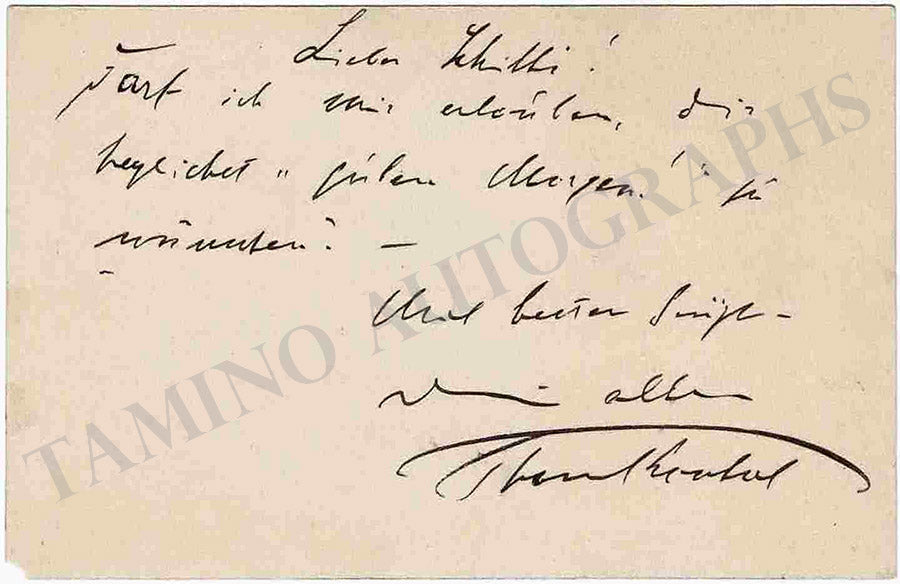 Lieber Schilli!
Darf ich mir erlauben, dir
herzlichst "guten Morgen!" zu
wünschen? —
Mit besten Grüße –
Dein alter
TAMINO AUTOGRAPHS